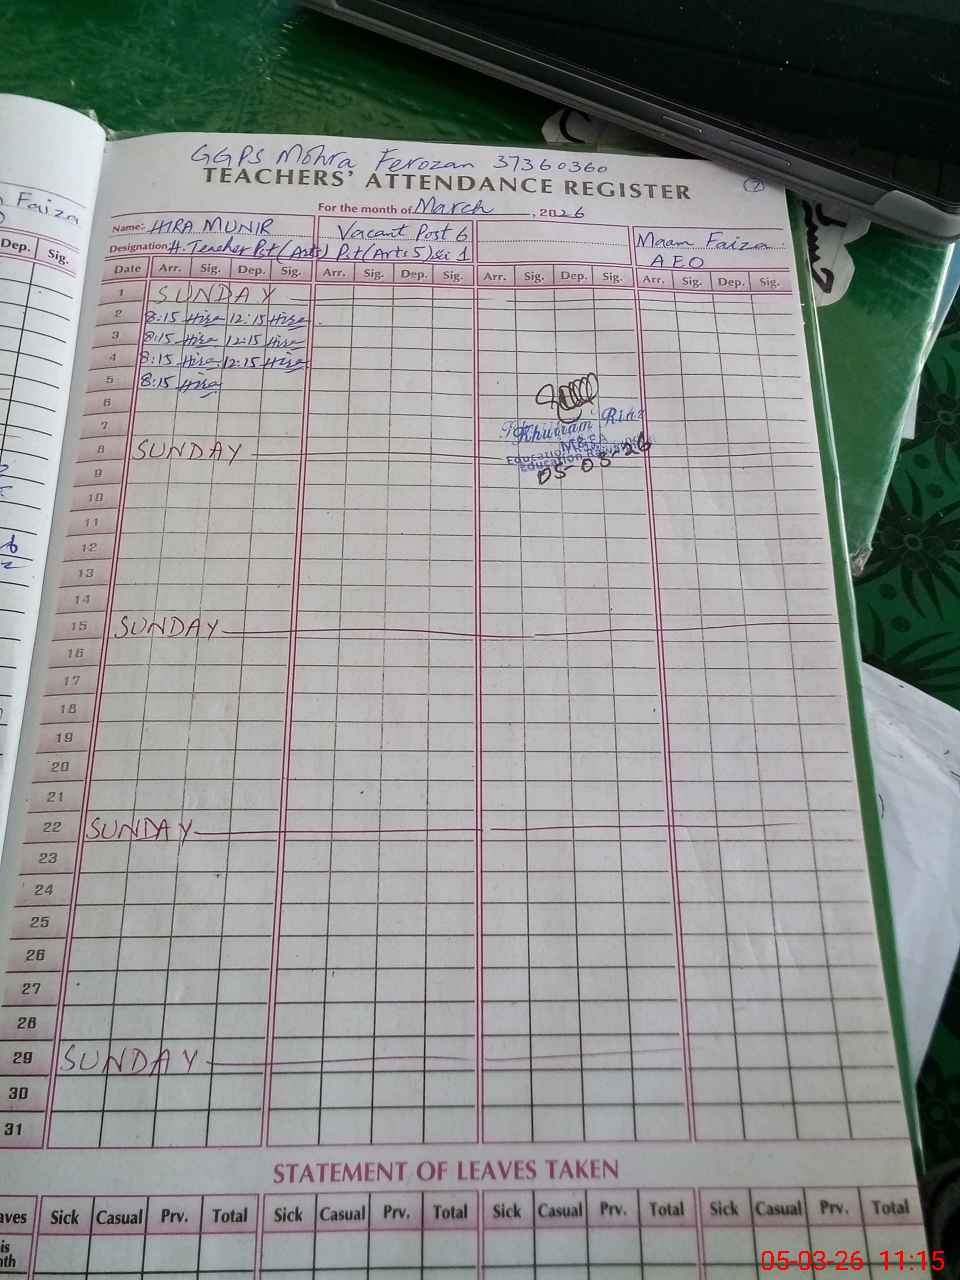 GGPS Mohra Ferozan 37360360
TEACHERS' ATTENDANCE REGISTER
7
For the month of March, 2026
Name: HIRA MUNIR Vacant Post 6 Maam Faiza
Designation H. Teacher Pst (Arts) Pst (Arts 5) Sci 1 AEO
Date Arr. Sig. Dep. Sig. Arr. Sig. Dep. Sig. Arr. Sig. Dep. Sig. Arr. Sig. Dep. Sig.
1 SUNDAY
2 8:15 Hira 12:15 Hira
3 8:15 Hira 12:15 Hira
4 8:15 Hira 12:15 Hira
5 8:15 Hira
6
7
Khurram Riaz
8 SUNDAY
M&EA
Education
9
05-03-26
10
11
12
13
14
15 SUNDAY
16
17
18
19
20
21
22 SUNDAY
23
24
25
26
27
28
29 SUNDAY
30
31
STATEMENT OF LEAVES TAKEN
aves Sick Casual Prv. Total Sick Casual Prv. Total Sick Casual Prv. Total Sick Casual Prv. Total
is
nth
Faiza
Dep. Sig.
05-03-26 11:15